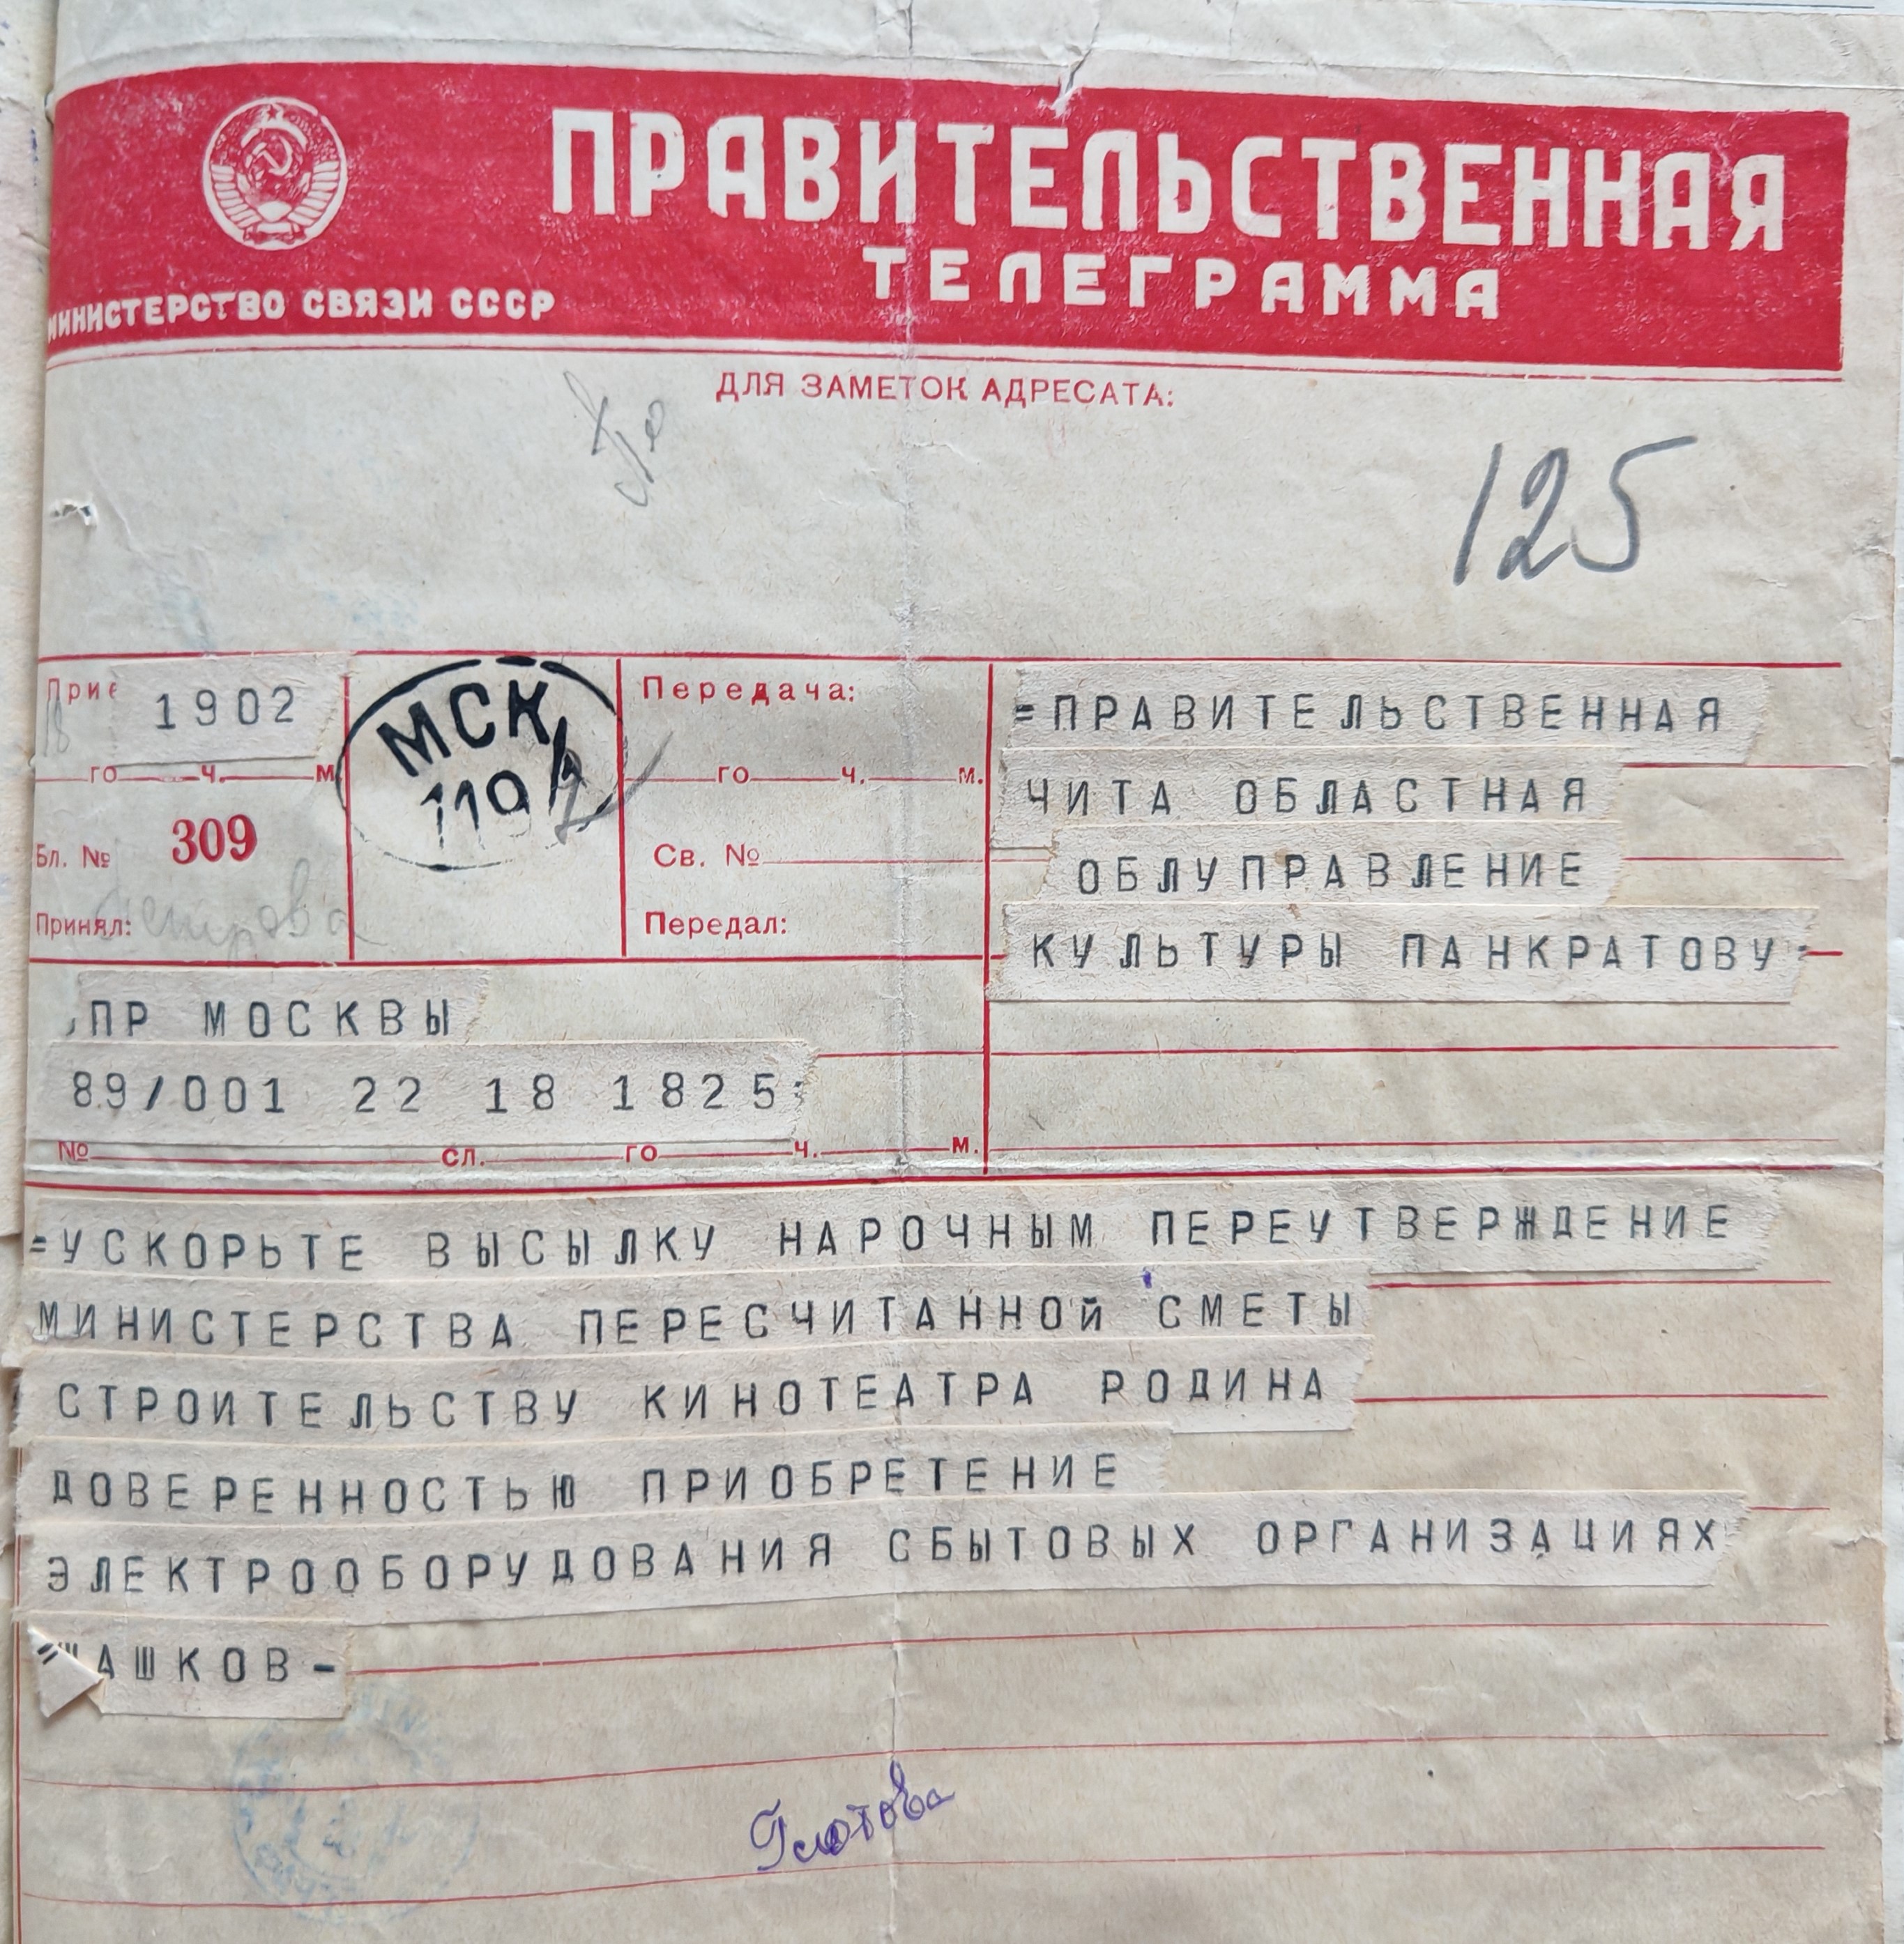 ПРАВИТЕЛЬСТВЕННАЯ
ТЕЛЕГРАММА
МИНИСТЕРСТВО СВЯЗИ СССР
ДЛЯ ЗАМЕТОК АДРЕСАТА:
125
1902
18
го ч. м.
Бл. № 309
Принял:
МСК
Передача:
го ч. м.
Св. №
Передал:
=ПРАВИТЕЛЬСТВЕННАЯ
ЧИТА ОБЛАСТНАЯ
ОБЛУПРАВЛЕНИЕ
КУЛЬТУРЫ ПАНКРАТОВУ=
ПР МОСКВЫ
89/001 22 18 1825=
№ сл. го ч. м.
=УСКОРЬТЕ ВЫСЫЛКУ НАРОЧНЫМ ПЕРЕУТВЕРЖДЕНИЕ
МИНИСТЕРСТВА ПЕРЕСЧИТАННОЙ СМЕТЫ
СТРОИТЕЛЬСТВУ КИНОТЕАТРА РОДИНА
ДОВЕРЕННОСТЬЮ ПРИОБРЕТЕНИЕ
ЭЛЕКТРООБОРУДОВАНИЯ СБЫТОВЫХ ОРГАНИЗАЦИЯХ
Глотова